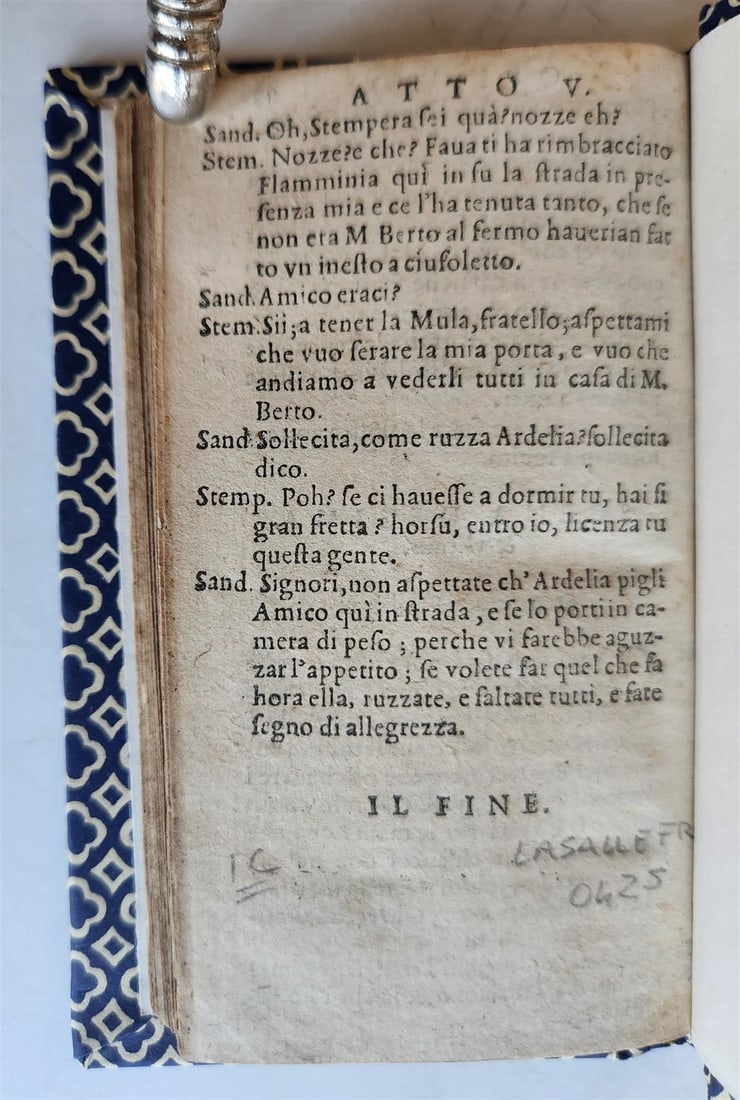 ATTO V.
Sand. Oh, Stempera ſei quà? nozze eh?
Stem. Nozze? e che? Faua ti ha rimbracciato
Flamminia quì in ſu la ſtrada in pre-
ſenza mia e ce l'ha tenuta tanto, che ſe
non era M Berto al fermo hauerian fat
to vn ineſto a ciufoletto.
Sand. Amico eraci?
Stem. Sii; a tener la Mula, fratello; aſpettami
che vuo ſerare la mia porta, e vuo che
andiamo a vederli tutti in caſa di M.
Berto.
Sand. Sollecita, come ruzza Ardelia? ſollecita
dico.
Stemp. Poh? ſe ci haueſſe a dormir tu, hai ſi
gran fretta? horſù, entro io, licenza tu
queſta gente.
Sand. Signori, non aſpettate ch' Ardelia pigli
Amico quì in ſtrada, e ſe lo porti in ca-
mera di peſo; perche vi farebbe aguz-
zar l'appetito; ſe volete far quel che fa
hora ella, ruzzate, e ſaltate tutti, e fate
ſegno di allegrezza.
IL FINE.
LASALLE FR
0425